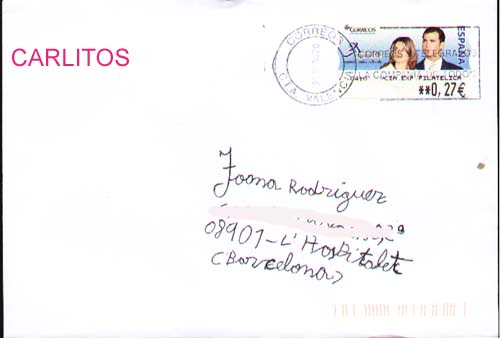 CARLITOS
CORREOS
CTA. VALENCIA
CORREOS
ESPAÑA
CORREOS Y TELEGRAFOS
LA COMPAÑIA DE TODOS
EXP. FILATELICA
**0,27€
Joana Rodriguez
08901-L'Hospitalet
(Barcelona)